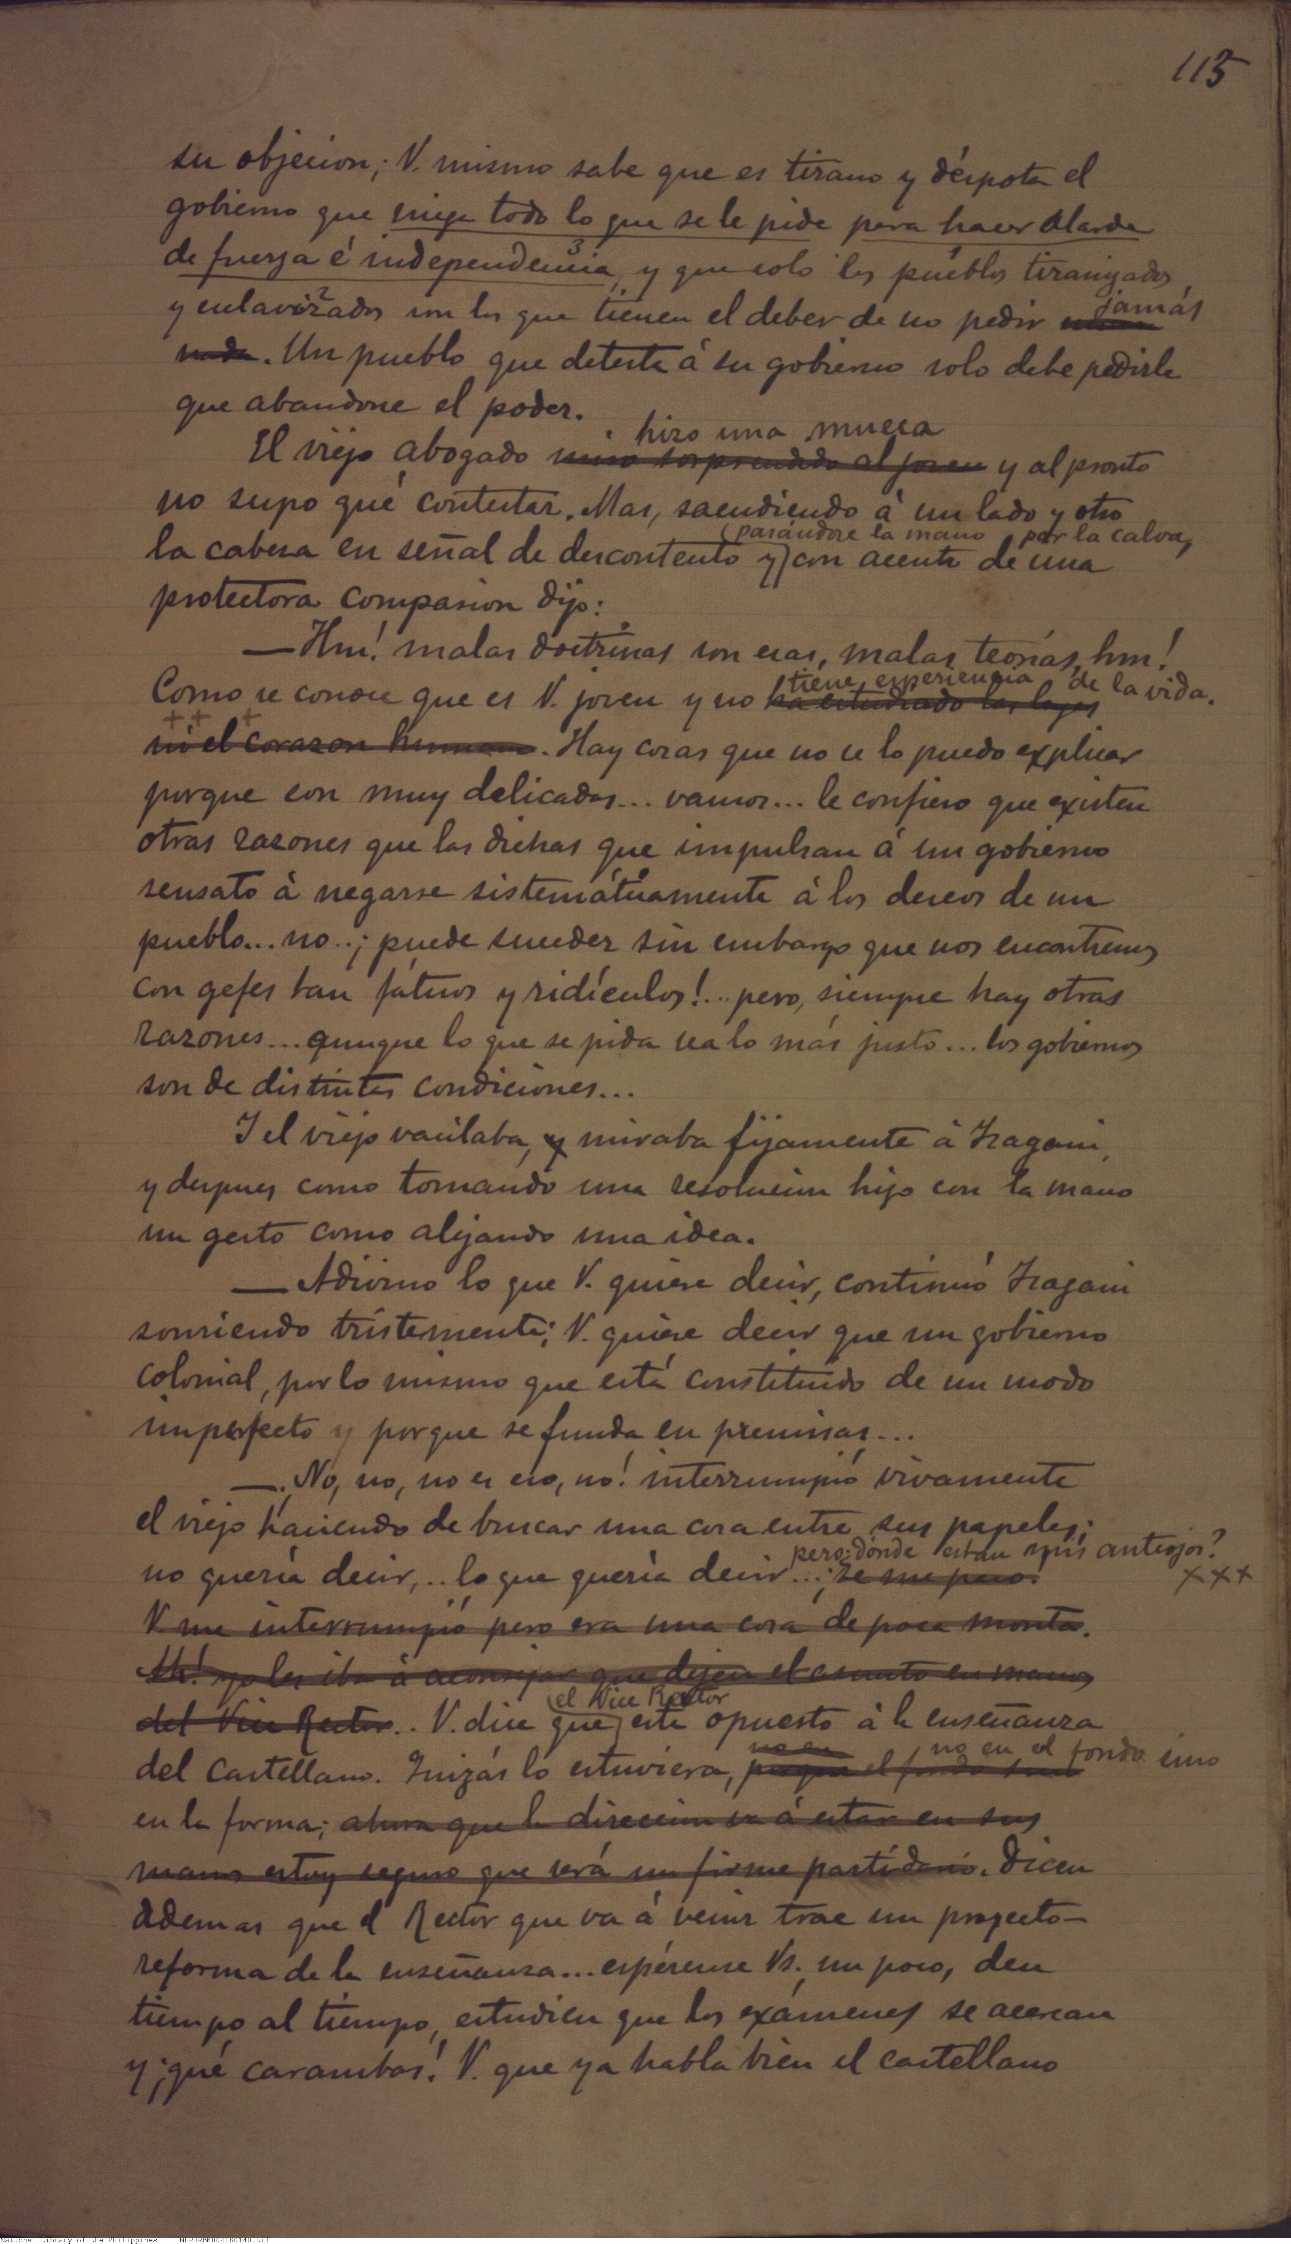 115
su objecion; V. mismo sabe que es tirano y déspota el
gobierno que niega todo lo que se le pide para hacer alarde
de fuerza é independencia, y que solo los pueblos tiranizados
y esclavizados son los que tienen el deber de no pedir jamás
nada. Un pueblo que deteste á su gobierno solo debe pedirle
que abandone el poder.
hizo una mueca
El viejo abogado miró sorprendido al joven y al pronto
no supo qué contestar. Mas, sacudiendo á un lado y otro
(pasándose la mano por la calva,
la cabeza en señal de descontento y) con acento de una
protectora compasion dijo:
—Hm! malas doctrinas son esas, malas teorías, hm!
tiene experiencia de la vida.
Como se conoce que es V. joven y no ha estudiado las leyes
ni el corazon humano. Hay cosas que no se lo puedo explicar
porque son muy delicadas... vamos... le confieso que existen
otras razones que las dichas que impulsan á un gobierno
sensato á negarse sistemáticamente á los deseos de un
pueblo... no..; puede suceder sin embargo que nos encontremos
con gefes tan fátuos y ridículos!... pero, siempre hay otras
razones... aunque lo que se pida sea lo más justo... los gobiernos
son de distintas condiciones...
Y el viejo vacilaba, y miraba fijamente á Isagani,
y despues como tomando una resolucion hizo con la mano
un gesto como alejando una idea.
— Adivino lo que V. quiere decir, continuó Isagani
sonriendo tristemente; V. quiere decir que un gobierno
colonial, por lo mismo que está constituido de un modo
imperfecto y porque se funda en premisas...
—¡No, no, no es eso, no! interrumpió vivamente
el viejo haciendo de buscar una cosa entre sus papeles;
pero: dónde estan mis anteojos?
no quería decir,... lo que quería decir...; se me paso! xxx
V. me interrumpió pero era una cosa de poca monta.
Ah! yo les iba á aconsejar que dejen el asunto en manos
del Vice Rector.. V. dice que (el Vice Rector) este opuesto á la enseñanza
no en el fondo sino
del Castellano. Quizás lo estuviera, el fondo sino
en la forma; ahora que la direccion va á estar en sus
manos estoy seguro que será un firme partidario. Dicen
ademas que el Rector que va á venir trae un proyecto—
reforma de la enseñanza... espérense Vs. un poco, den
tiempo al tiempo, estudien que los exámenes se acercan
y ¡qué carambas! V. que ya habla bien el castellano